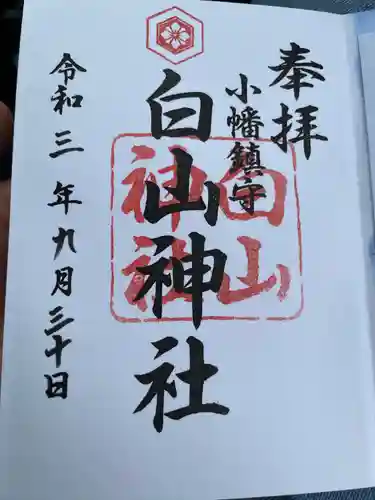 奉拝
小幡鎮守
白山神社
白山
神社
令和三年九月三十日